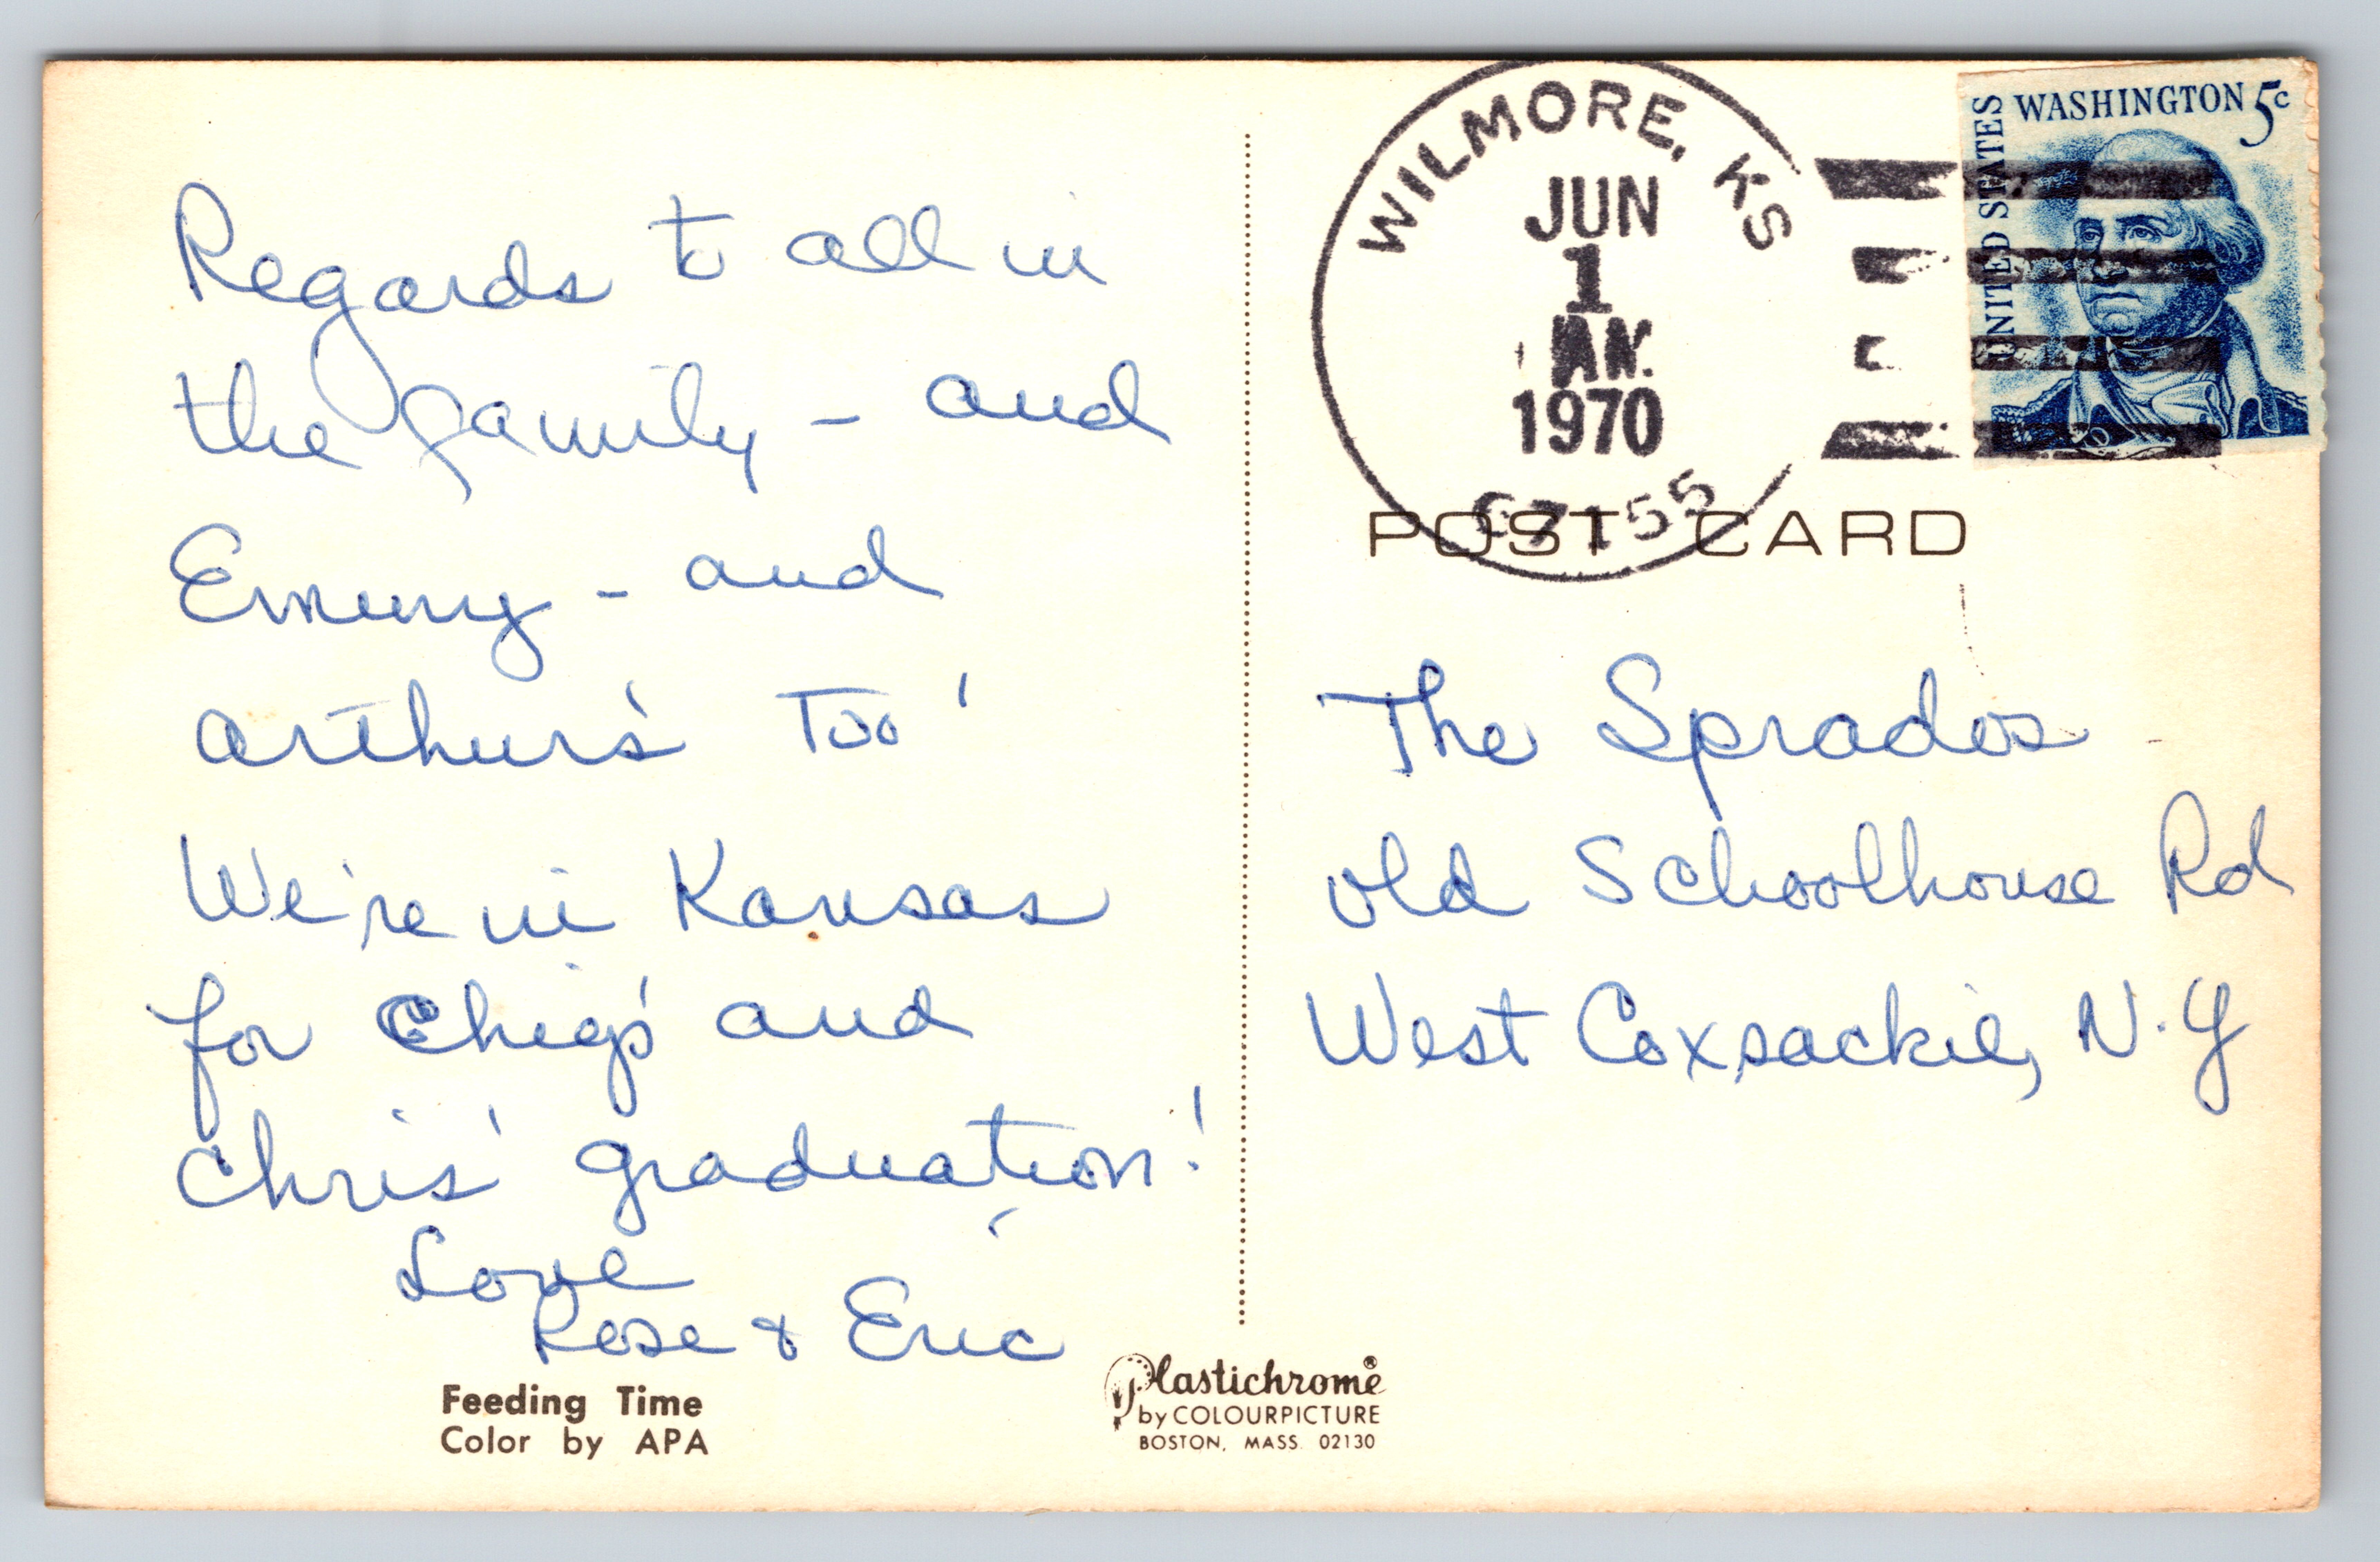 Regards to all in
the family - and
Emmy - and
Arthur's Too!
We're in Kansas
for Chip's and
Chris' graduation!
Love
Rose & Eric
Feeding Time
Color by APA
Plastichrome®
by COLOURPICTURE
BOSTON, MASS. 02130
WILMORE, KS
JUN
1
AM
1970
67155
UNITED STATES
WASHINGTON 5c
POST CARD
The Sprados
Old Schoolhouse Rd
West Coxsackie, N.Y